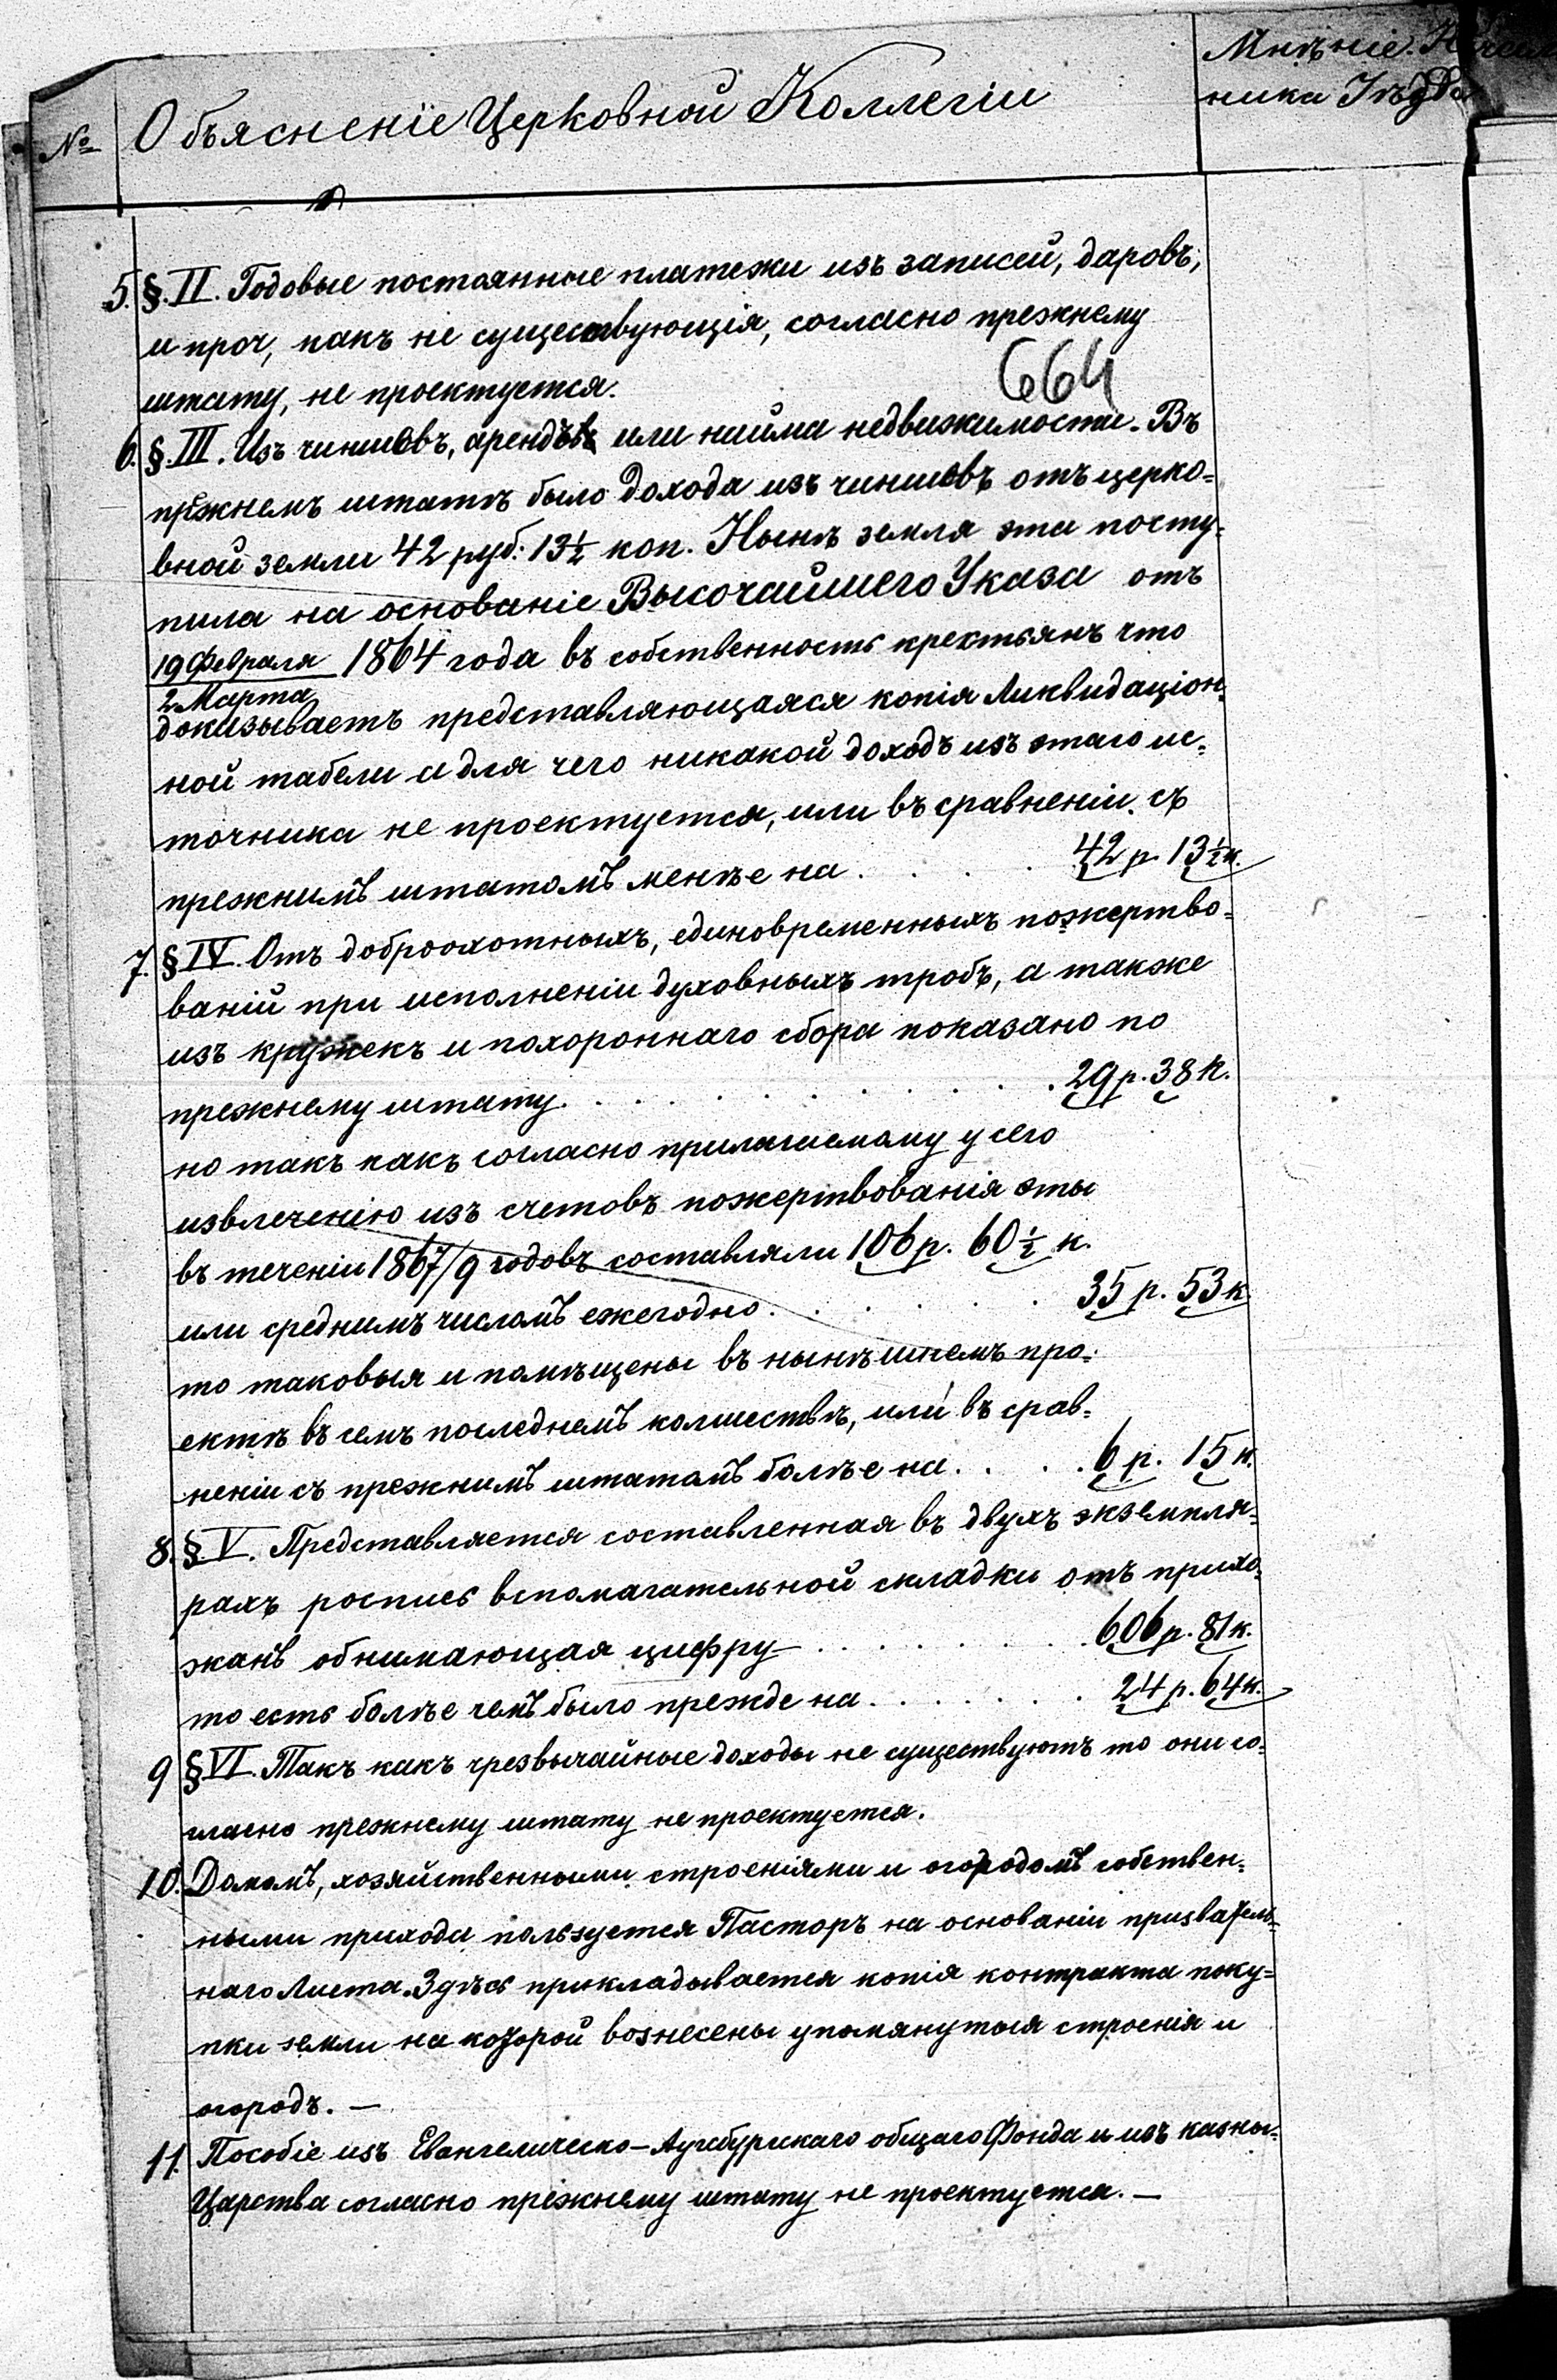 № Объясненіе Церковной Коллегіи
Мнѣніе Началь
ника Уѣзда
5. §. II. Годовые постоянные платежи изъ записей, даровъ,
и проч, какъ не существующія, согласно прежнему
664
штату, не проектуется.
6. §. III. Изъ чиншовъ, арендъ или найма недвижимости. Въ
прежнемъ штатѣ было дохода изъ чиншовъ отъ церко=
вной земли 42 руб: 13½ коп. Нынѣ земля эта посту=
пила на основаніе Высочайшего Указа отъ
19 Февраля / 2 Марта 1864 года въ собственность крестьянъ что
доказываетъ представляющаяся копія Ликвидаціон=
ной табели и для чего никакой доходъ изъ этаго ис=
точника не проектуется, или въ сравненіи съ
прежнимъ штатомъ менѣе на . . . . . 42 р. 13½ к.
7. § IV. Отъ доброохотныхъ, единовременныхъ пожертво=
ваній при исполненіи духовныхъ требъ, а также
изъ кружекъ и похороннаго сбора показано по
прежнему штату . . . . . . . . . . 29 р. 38 к.
но такъ какъ согласно прилагаемому у сего
извлеченію изъ счетовъ пожертвованія эты
въ теченіи 1867/9 годовъ составляли 106 р. 60½ к.
или среднимъ числомъ ежегодно . . . . . . . 35 р. 53 к
то таковыя и помѣщены въ нынѣшнемъ про=
ектѣ въ семъ последнемъ количествѣ, или въ срав=
неніи съ прежнимъ штатомъ болѣе на . . . . 6 р. 15 к.
8. §. V. Представляется составленная въ двухъ экземпля=
рахъ роспись вспомагательной складки отъ прихо=
жанъ обнимающая цифру . . . . . . . . 606 р. 81 к.
то есть болѣе чемъ было прежде на . . . . . . . 24 р. 64 к.
9 § VI. Такъ какъ чрезвычайные доходы не существуютъ то они со=
гласно прежнему штату не проектуется.
10. Домомъ, хозяйственными строеніями и огородомъ собствен=
ными прихода пользуется Пасторъ на основаніи призватель=
наго Листа. Здѣсь прикладывается копія контракта поку=
пки земли на которой вознесены упомянутыя строенія и
огородъ. —
11. Пособіе изъ Евангелическо-Аугсбургскаго общаго Фонда и изъ казны=
Царства согласно прежнему штату не проектуется. —